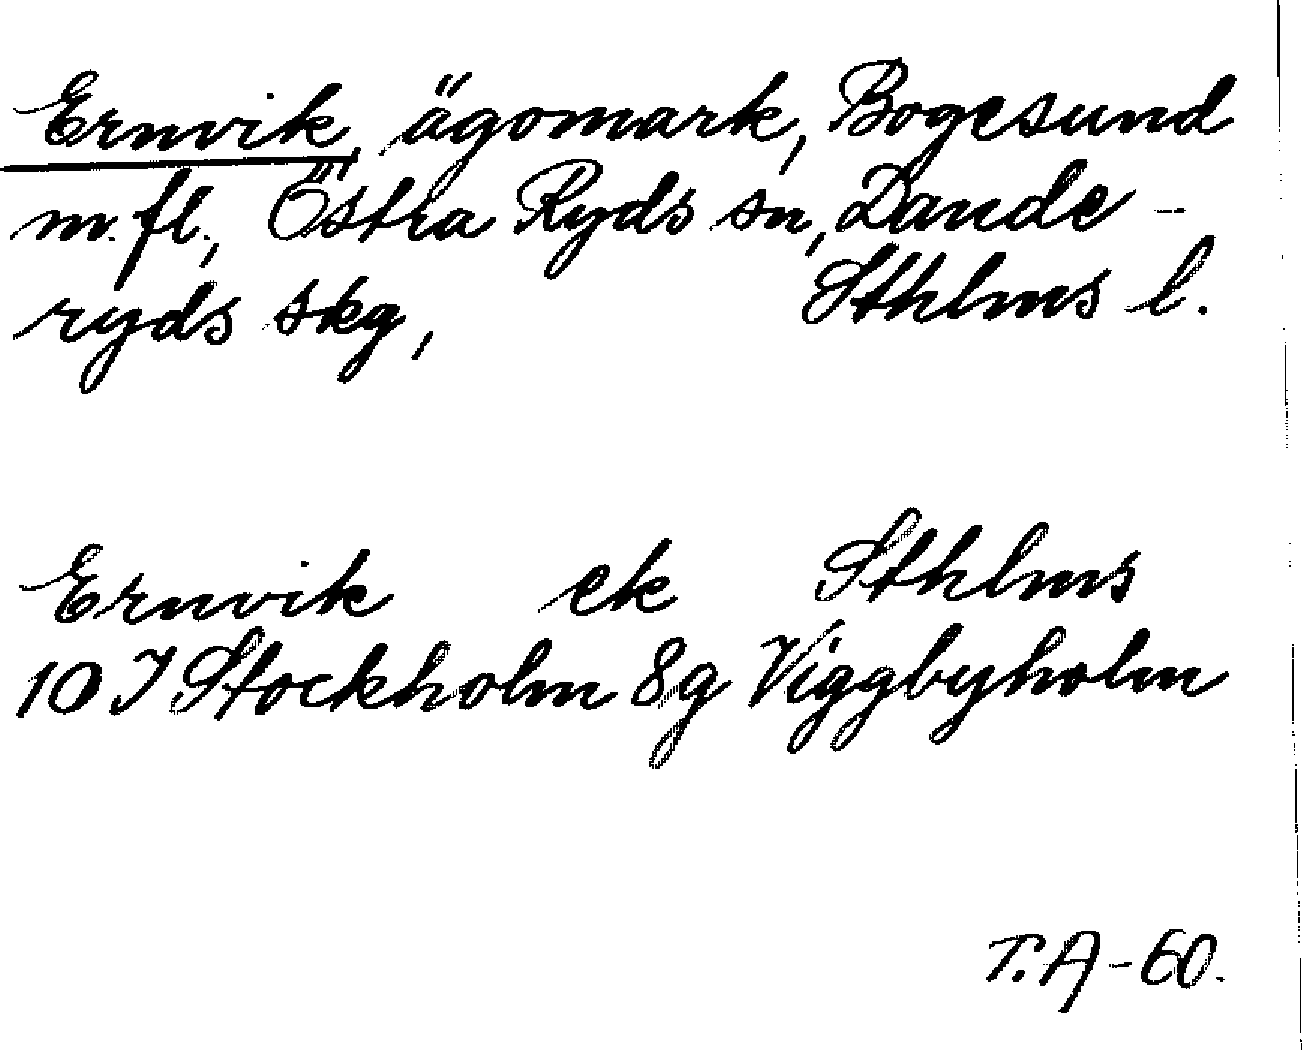 Ernvik, ägomark, Bogesund
m.fl., Östra Ryds sn, Dande-
ryds skg, Sthlms l.
Ernvik ek Sthlms
10 I Stockholm 8g Viggbyholm
T.A-60.